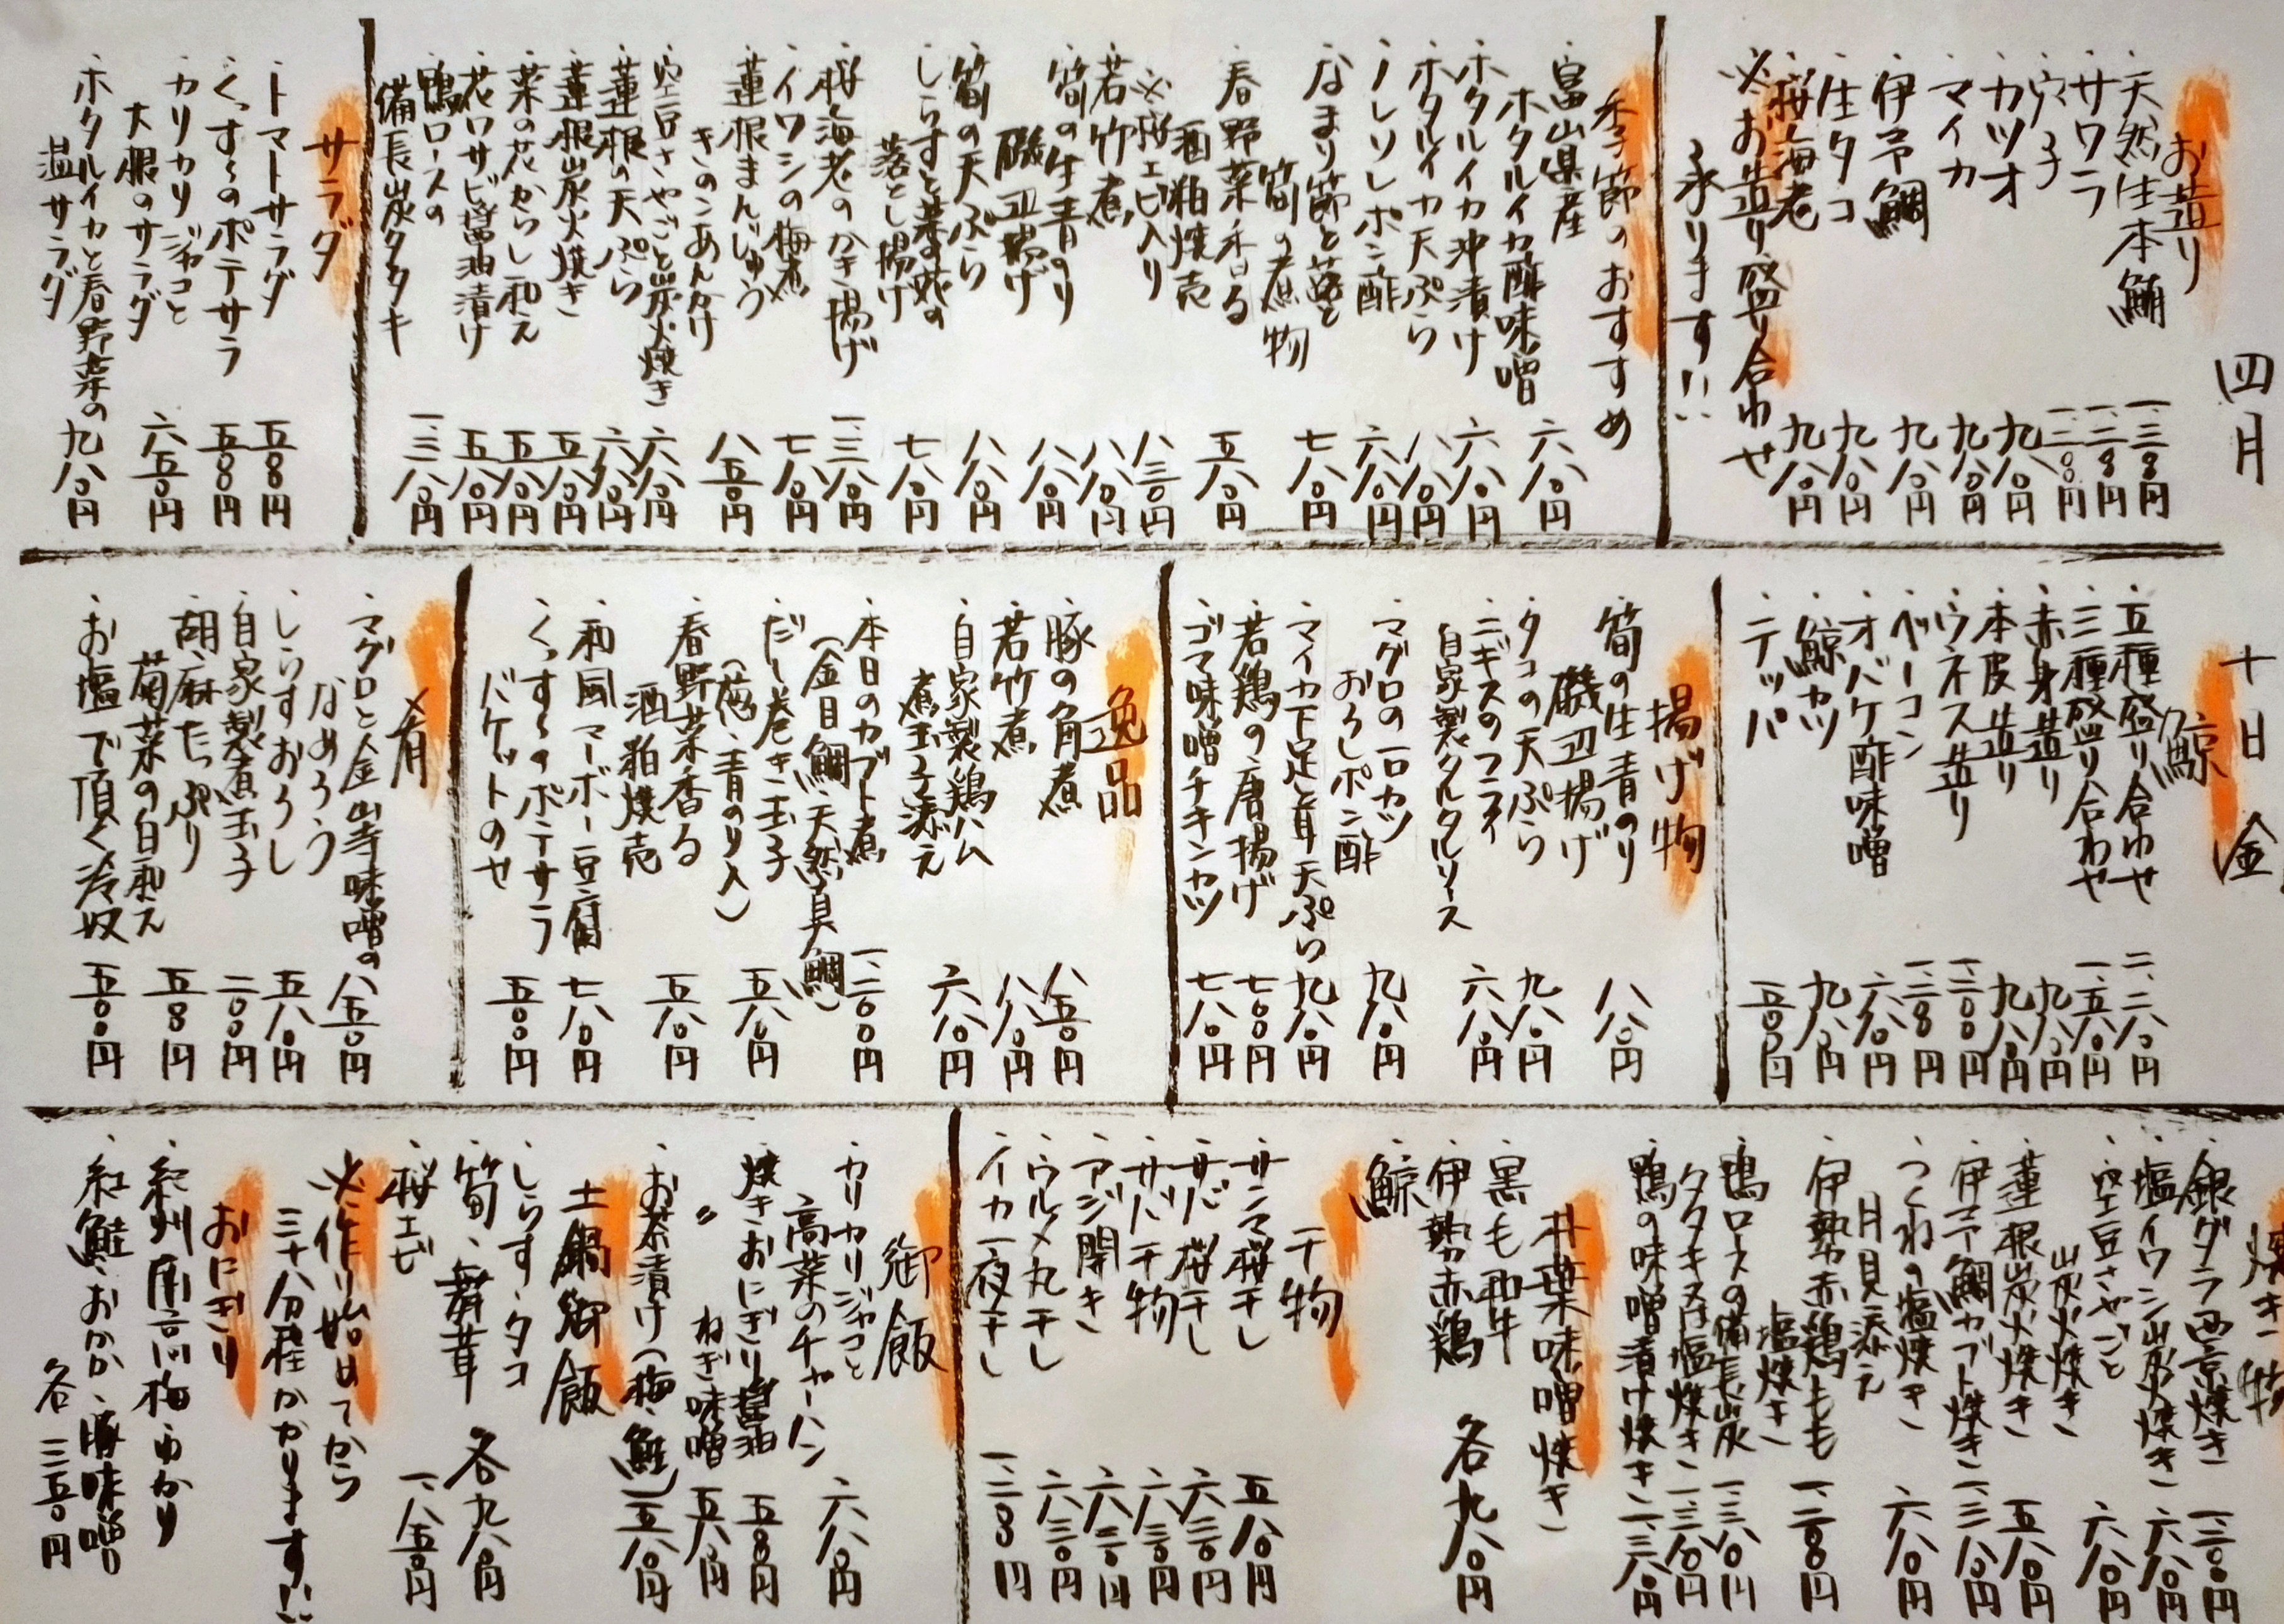 四月
十日
金
お造り
・天然生本鮪 一、三八〇円
・サワラ 一、二八〇円
・カツオ 九八〇円
・マイカ 九八〇円
・伊予鯛 九八〇円
・生タコ 九八〇円
・桜海老 九八〇円
※お造り盛り合わせ
承ります!!
季節のおすすめ
・富山県産
ホタルイカ酢味噌 六八〇円
・ホタルイカ沖漬け 六八〇円
・ホタルイカ天ぷら 八八〇円
・ノレソレポン酢 六八〇円
・なまり節と蕗と
筍の煮物 七八〇円
・春野菜香る
酒粕焼売 五八〇円
※桜エビ入り 八三〇円
・若竹煮 八八〇円
・筍の生青のり
磯辺揚げ 八八〇円
・筍の天ぷら 八八〇円
・しらすと菜の花の
落とし揚げ 七八〇円
・桜海老のかき揚げ 一、三八〇円
・イワシの梅煮 七八〇円
・蓮根まんじゅう
きのこあんかけ 八五〇円
・空豆さやごと炭火焼き 六八〇円
・蓮根の天ぷら 六八〇円
・蓮根炭火焼き 五八〇円
・菜の花からし和え 五八〇円
・花ワサビ醤油漬け 五八〇円
・鴨ロースの
備長炭タタキ 一、三八〇円
サラダ
・トマトサラダ 五八〇円
・くっすーのポテサラ 五〇〇円
・カリカリジャコと
大根のサラダ 六五〇円
・ホタルイカと春野菜の
温サラダ 九八〇円
鯨
・五種盛り合わせ 二、二八〇円
・三種盛り合わせ 一、五八〇円
・赤身造り 九八〇円
・本皮造り 九八〇円
・ウネス造り 一、二〇〇円
・ベーコン 一、二八〇円
・オバケ酢味噌 六八〇円
・鯨カツ 九八〇円
・テッパ 五〇〇円
揚げ物
・筍の生青のり
磯辺揚げ 八八〇円
・タコの天ぷら 九八〇円
・ニギスのフライ
自家製タルタルソース 六八〇円
・マグロの一口カツ
おろしポン酢 九八〇円
・マイカ下足と茸天ぷら 九八〇円
・若鶏の唐揚げ 七〇〇円
・ゴマ味噌チキンカツ 七八〇円
逸品
・豚の角煮 八五〇円
・若竹煮 八八〇円
・自家製鶏ハム
煮玉子添え 六八〇円
・本日のカブト煮
(金目鯛、天然真鯛) 一、二〇〇円
・だし巻き玉子
(葱、青のり入) 五八〇円
・春野菜香る
酒粕焼売 五八〇円
・和風マーボー豆腐 七八〇円
・くっすーのポテサラ
バケットのせ 五〇〇円
肴
・マグロと金山寺味噌の
なめろう 八五〇円
・しらすおろし 五八〇円
・自家製煮玉子 二〇〇円
・胡麻たっぷり
菊菜の白和え 五八〇円
・お塩で頂く冷奴 五〇〇円
焼き物
・銀ダラ西京焼き 一、二八〇円
・塩イワシ炭火焼き 六八〇円
・空豆さやごと
炭火焼き 六八〇円
・蓮根炭火焼き 五八〇円
・伊予鯛カブト焼き 一、三八〇円
・つくねの塩焼き
月見添え 六八〇円
・伊勢赤鶏もも
塩焼き 一、二八〇円
・鴨ロースの備長炭
タタキ 一、三八〇円
・鴨の味噌漬け焼き 一、三八〇円
朴葉味噌焼き
・黒毛和牛
・伊勢赤鶏
・鯨
各九八〇円
干物
・サンマ桜干し 五八〇円
・サバ桜干し 六三〇円
・サバ干物 六三〇円
・アジ開き 六三〇円
・ウルメ丸干し 六三〇円
・イカ一夜干し 一、二八〇円
御飯
・カリカリジャコと
高菜のチャーハン 六八〇円
・焼きおにぎり醤油 五〇〇円
〃 ねぎ味噌 五八〇円
・お茶漬け(梅、鮭) 五八〇円
土鍋御飯
・しらす・タコ
・筍、舞茸 各九八〇円
・桜エビ 一、八五〇円
※作り始めてから
三十分程かかります!!
おにぎり
・紀州南高梅・ゆかり
・紅鮭・おかか・豚味噌
各 三五〇円